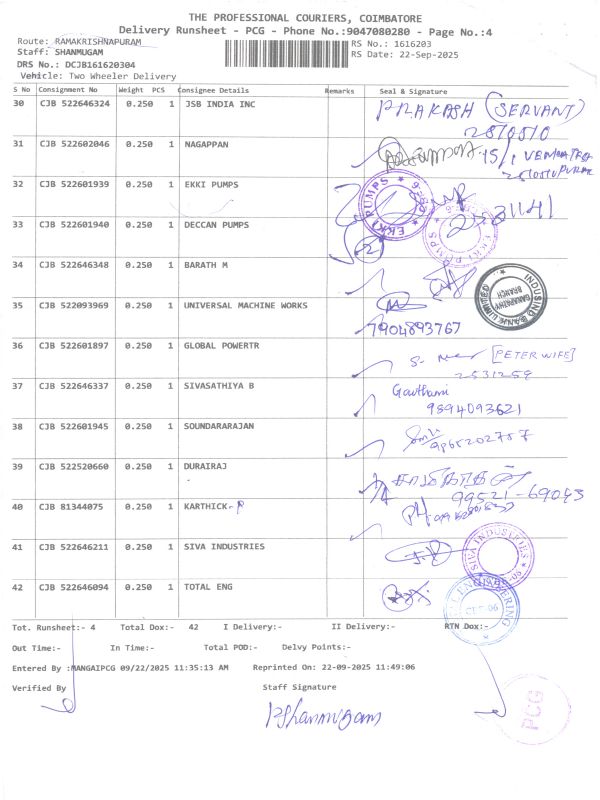 THE PROFESSIONAL COURIERS, COIMBATORE
Delivery Runsheet - PCG - Phone No.:9047080280 - Page No.:4
Route: RAMAKRISHNAPURAM RS No.: 1616203
Staff: SHANMUGAM RS Date: 22-Sep-2025
DRS No.: DCJB161620304
Vehicle: Two Wheeler Delivery
S No Consignment No Weight PCS Consignee Details Remarks Seal & Signature
30 CJB 522646324 0.250 1 JSB INDIA INC PRAKASH (SERVANT)
31 CJB 522602046 0.250 1 NAGAPPAN 15/1
32 CJB 522601939 0.250 1 EKKI PUMPS EKKI PUMPS
33 CJB 522601940 0.250 1 DECCAN PUMPS EKKI PUMPS
34 CJB 522646348 0.250 1 BARATH M
INDUSIND BANK LIMITED
GANAPATHY BRANCH
35 CJB 522093969 0.250 1 UNIVERSAL MACHINE WORKS
7904893767
36 CJB 522601897 0.250 1 GLOBAL POWERTR [PETER WIFE]
2531259
37 CJB 522646337 0.250 1 SIVASATHIYA B Gauthami
9894093621
38 CJB 522601945 0.250 1 SOUNDARARAJAN
9865202757
39 CJB 522520660 0.250 1 DURAIRAJ
99521-69043
40 CJB 81344075 0.250 1 KARTHICK-P PH:
41 CJB 522646211 0.250 1 SIVA INDUSTRIES SIVA INDUSTRIES
42 CJB 522646094 0.250 1 TOTAL ENG
Tot. Runsheet:- 4 Total Dox:- 42 I Delivery:- II Delivery:- RTN Dox:-
Out Time:- In Time:- Total POD:- Delvy Points:-
Entered By :MANGAIPCG 09/22/2025 11:35:13 AM Reprinted On: 22-09-2025 11:49:06
Verified By Staff Signature
PCG
P.Shanmugam